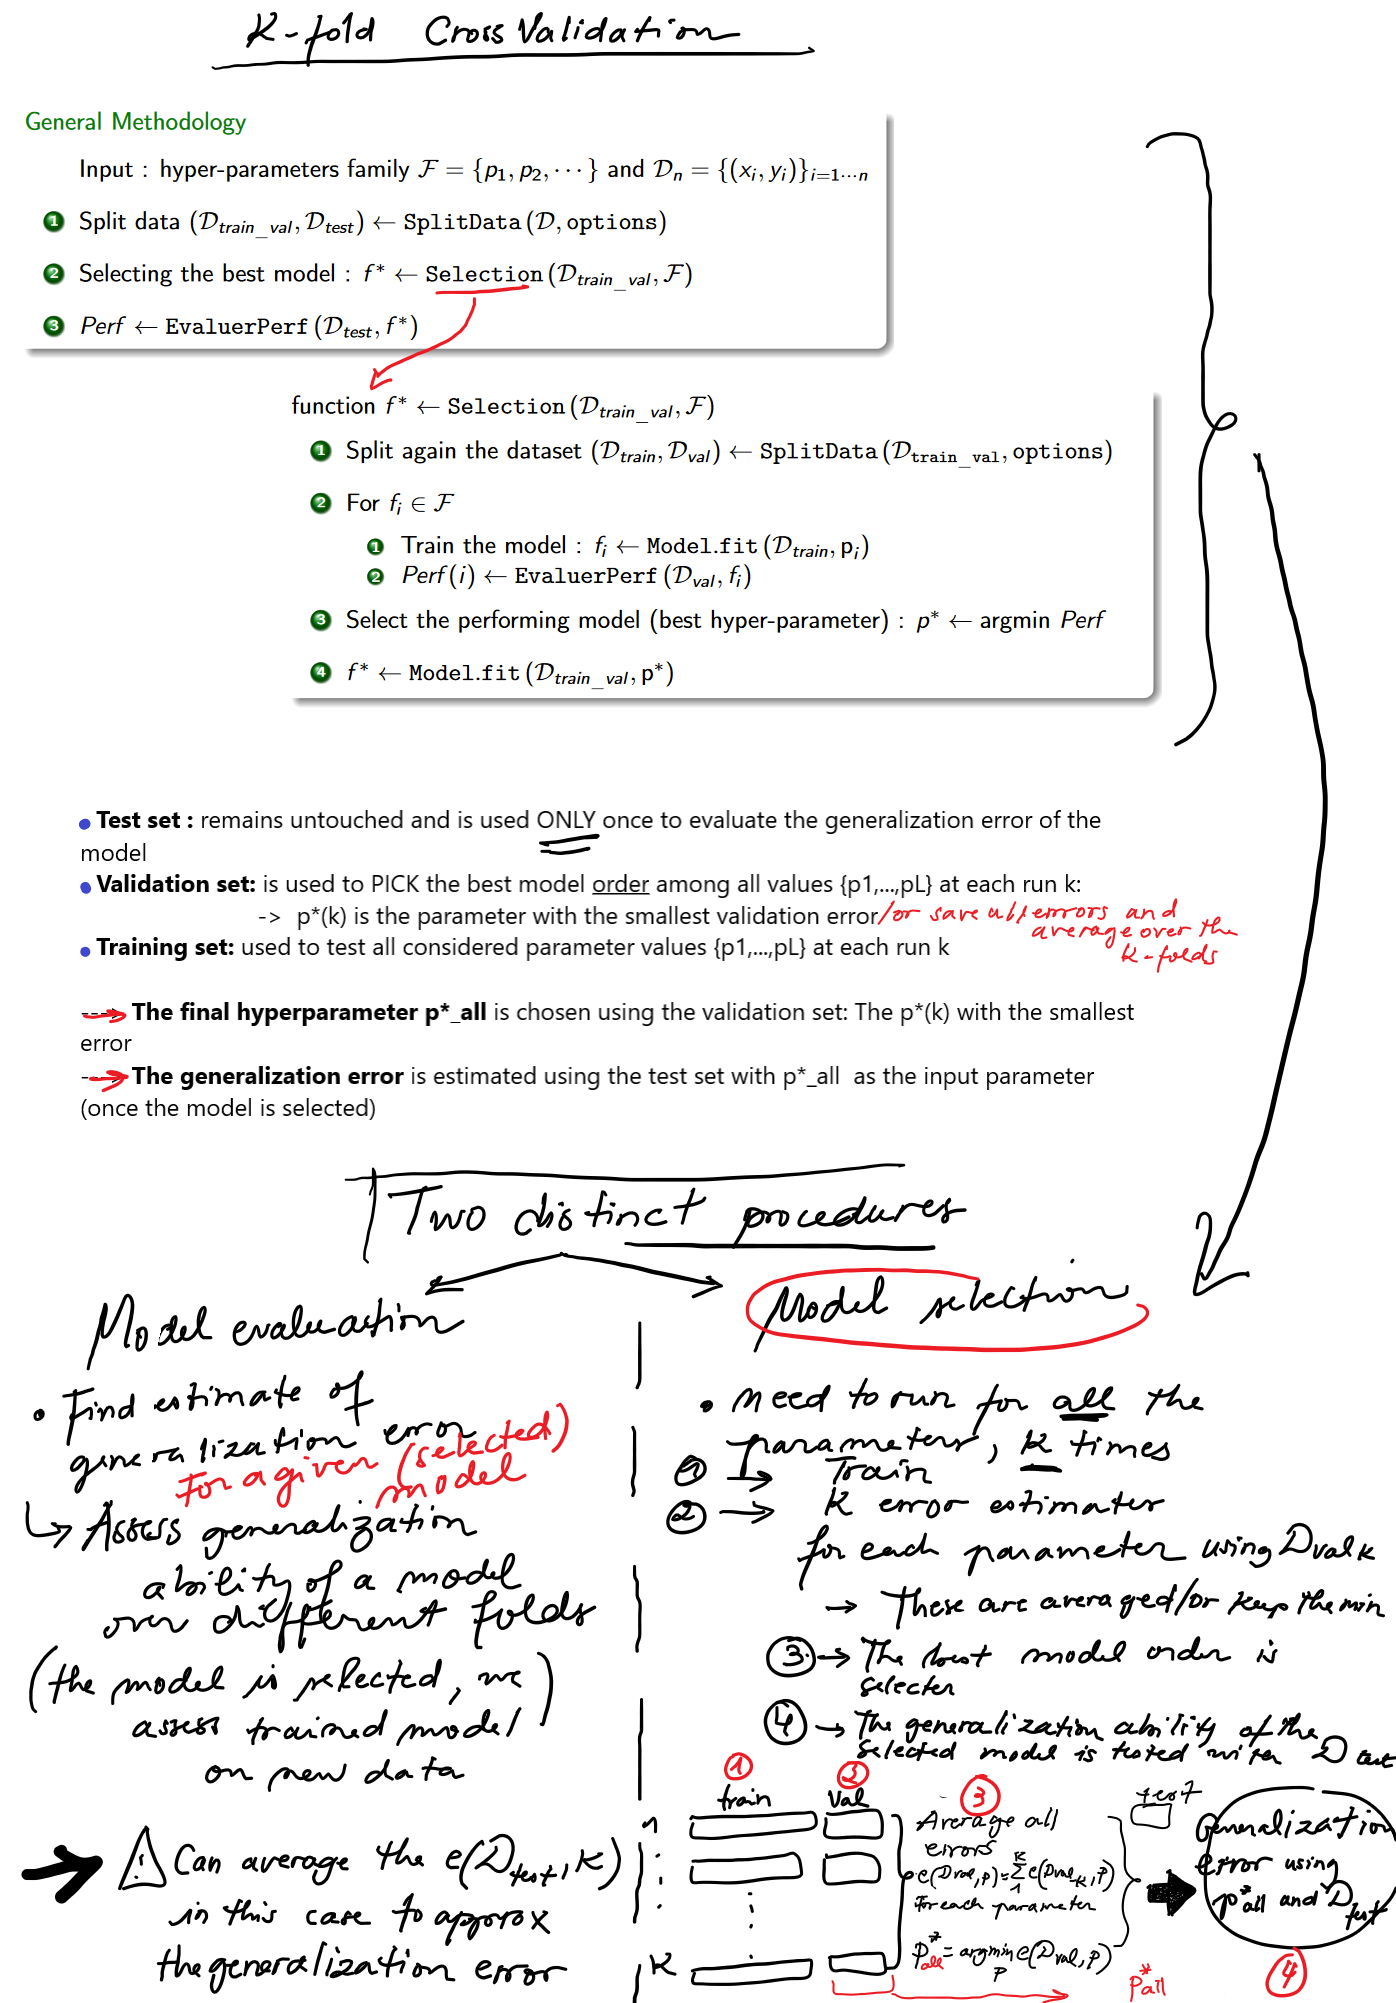 K-fold Cross Validation
General Methodology
Input : hyper-parameters family F = {p₁, p₂, ⋯ } and Dₙ = {(xᵢ, yᵢ)}ᵢ₌₁⋯ₙ
1 Split data (D_train_val, D_test) ← SplitData (D, options)
2 Selecting the best model : f* ← Selection (D_train_val, F)
3 Perf ← EvaluerPerf (D_test, f*)
function f* ← Selection (D_train_val, F)
1 Split again the dataset (D_train, D_val) ← SplitData (D_train_val, options)
2 For fᵢ ∈ F
1 Train the model : fᵢ ← Model.fit (D_train, pᵢ)
2 Perf(i) ← EvaluerPerf (D_val, fᵢ)
3 Select the performing model (best hyper-parameter) : p* ← argmin Perf
4 f* ← Model.fit (D_train_val, p*)
• Test set : remains untouched and is used ONLY once to evaluate the generalization error of the
model
• Validation set: is used to PICK the best model order among all values {p1,...,pL} at each run k:
-> p*(k) is the parameter with the smallest validation error /or save all errors and
average over the
K-folds
• Training set: used to test all considered parameter values {p1,...,pL} at each run k
----> The final hyperparameter p*_all is chosen using the validation set: The p*(k) with the smallest
error
----> The generalization error is estimated using the test set with p*_all as the input parameter
(once the model is selected)
Two distinct procedures
Model evaluation
• Find estimate of
generalization error
For a given (selected)
model
↳ Assess generalization
ability of a model
over different folds
(the model is selected, we
assess trained model
on new data)
→ ⚠ Can average the e(D_test, K)
in this case to approx
the generalization error
Model selection
• need to run for all the
parameters, K times
① → Train
② → K error estimates
for each parameter using D val k
→ These are averaged/or keep the min
③ → The best model order is
selecter
④ → The generalization ability of the
selected model is tested with D test
① ② ③
train val test
1
K
Average all
errors
• e(Dval, p) = Σ₁ᴷ e(Dval_K, p)
For each parameter
P*all = argmin e(Dval, p)
p
P*all
Generalization
error using
p*all and D test
④